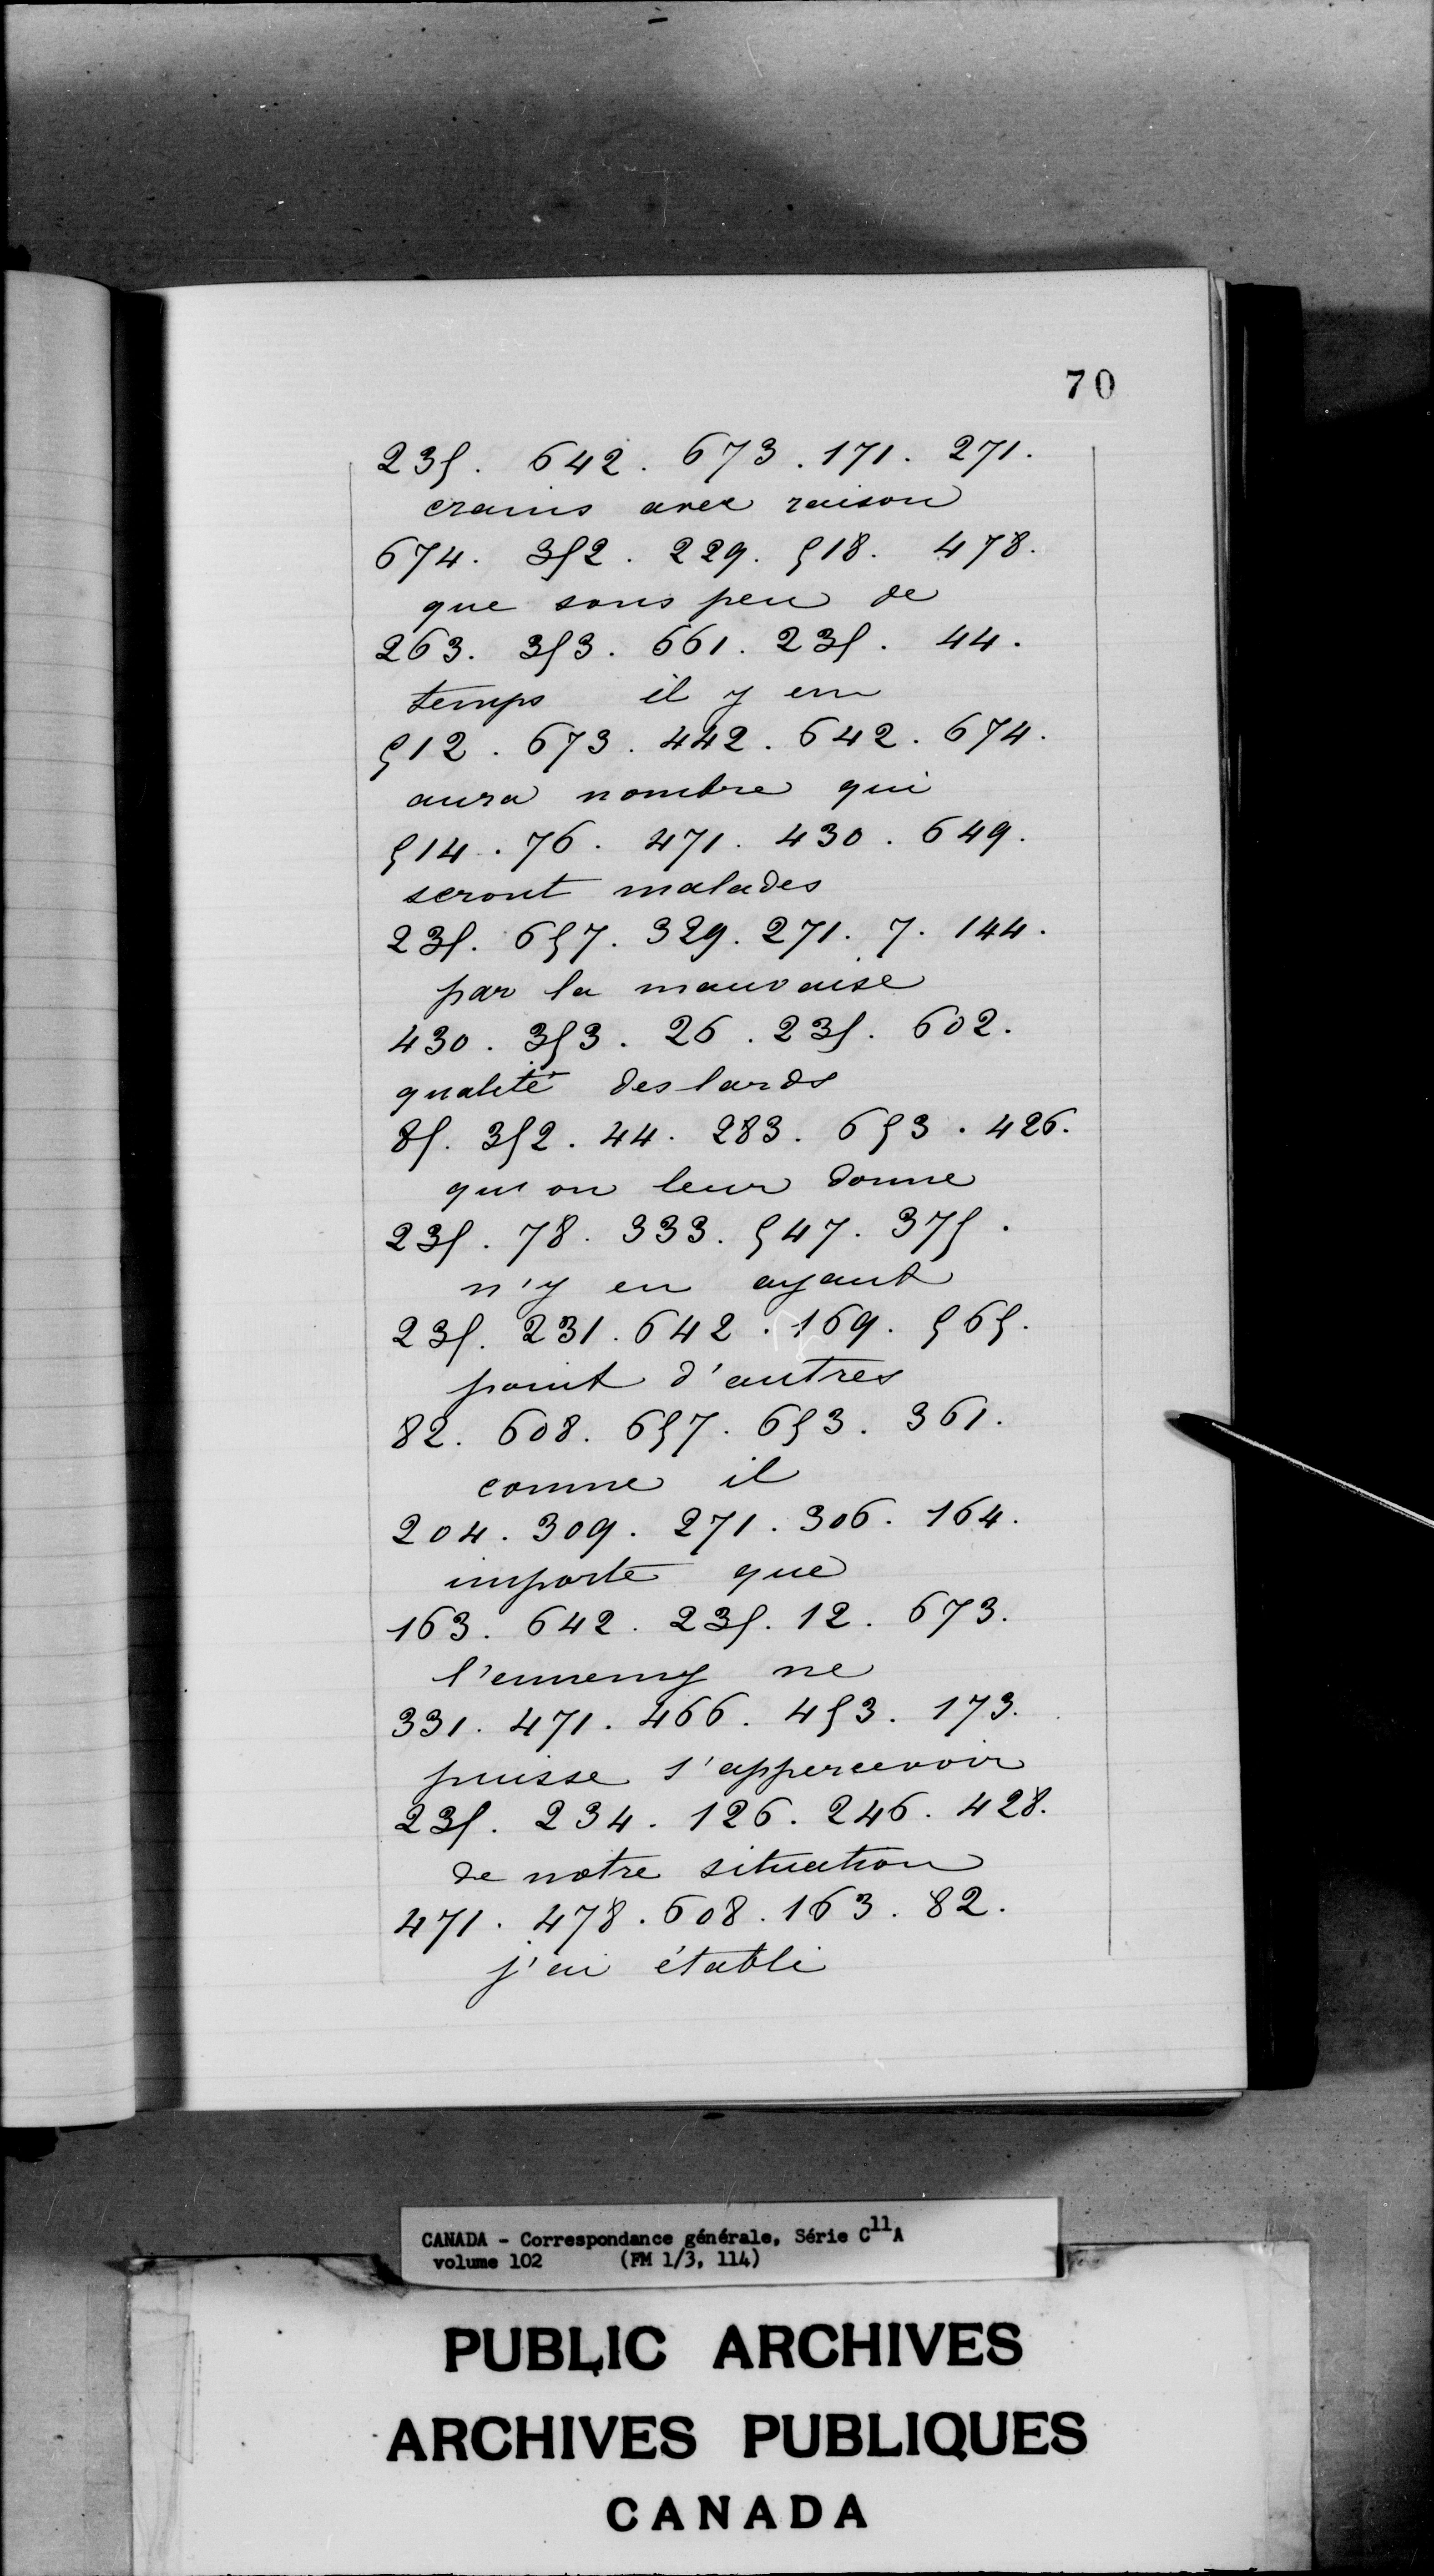 70
235. 642. 673. 171. 271.
crains avec raison
674. 352. 229. 518. 478.
que sous peu de
263. 353. 661. 235. 44.
temps il y en
512. 673. 442. 642. 674.
aura nombre qui
514. 76. 471. 430. 649.
seront malades
235. 657. 329. 271. 7. 144.
par la mauvaise
430. 353. 26. 235. 602.
qualité des lards
85. 352. 44. 283. 653. 426.
qu'on leur donne
235. 78. 333. 547. 375.
n'y en ayant
235. 231. 642. 169. 565.
point d'autres
82. 608. 657. 653. 361.
comme il
204. 309. 271. 306. 164.
importe que
163. 642. 235. 12. 673.
l'ennemy ne
331. 471. 466. 453. 173.
puisse s'appercevoir
235. 234. 126. 246. 428.
de notre situation
471. 478. 608. 163. 82.
j'ai établi
CANADA - Correspondance générale, Série C11A
volume 102 (FM 1/3, 114)
PUBLIC ARCHIVES
ARCHIVES PUBLIQUES
CANADA